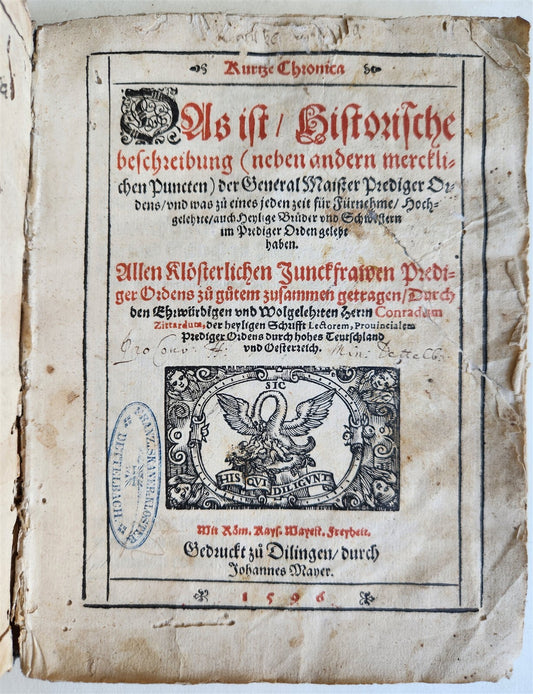 Kurtze Chronica
DAs ist / Historische
beschreibung (neben andern merckli-
chen Puncten) der General Maister Prediger Or-
dens / vnd was zů eines jeden zeit für Fürnehme / Hoch-
gelehrte / auch Heylige Brüder vnd Schwestern
im Prediger Orden gelebt
haben.
Allen Klösterlichen Junckfrawen Predi-
ger Ordens zů gůtem zusammen getragen / Durch
den Ehrwürdigen vnd Wolgelehrten Herrn Conradum
Zittardum, der heyligen Schrifft Lectorem, Prouincialem
Prediger Ordens durch hohes Teutschland
vnd Oesterreich.
Pro Conv:
SIC
HIS QVI DILIGVNT
FRANZISKANERKLOSTER
DETTELBACH
Mit Röm. Kays. Mayest. Freyheit.
Gedruckt zů Dilingen / durch
Johannes Mayer.
1596